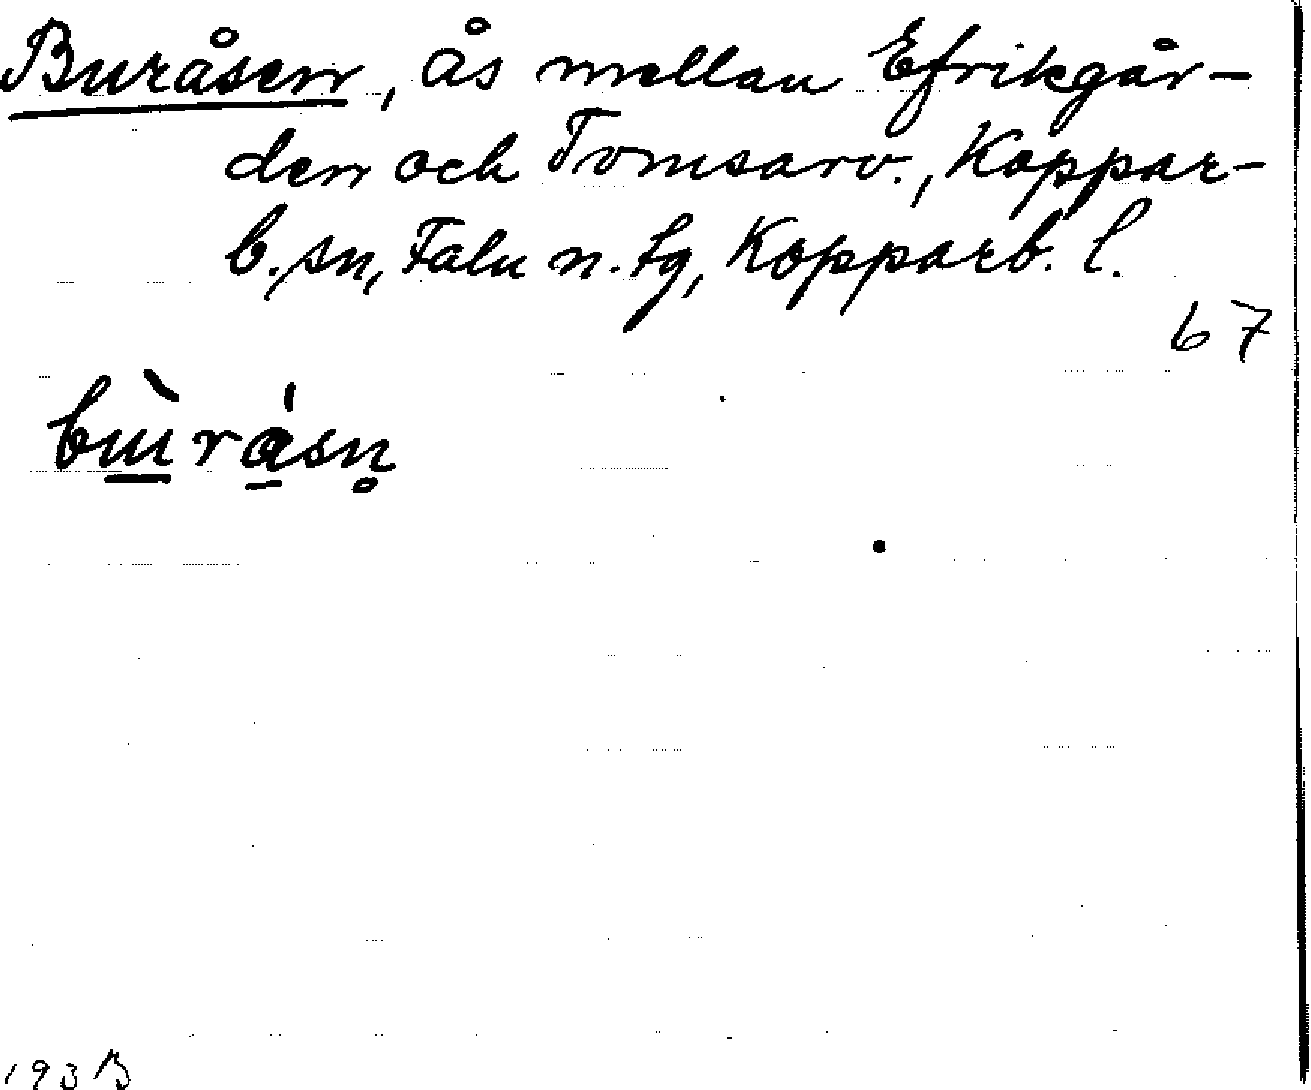 Buråsen, ås mellan Efrikgår-
den och Tomsarv., Koppar-
b. sn, Falu n. tg, Kopparb. l.
67
bùrásn̥
193 B